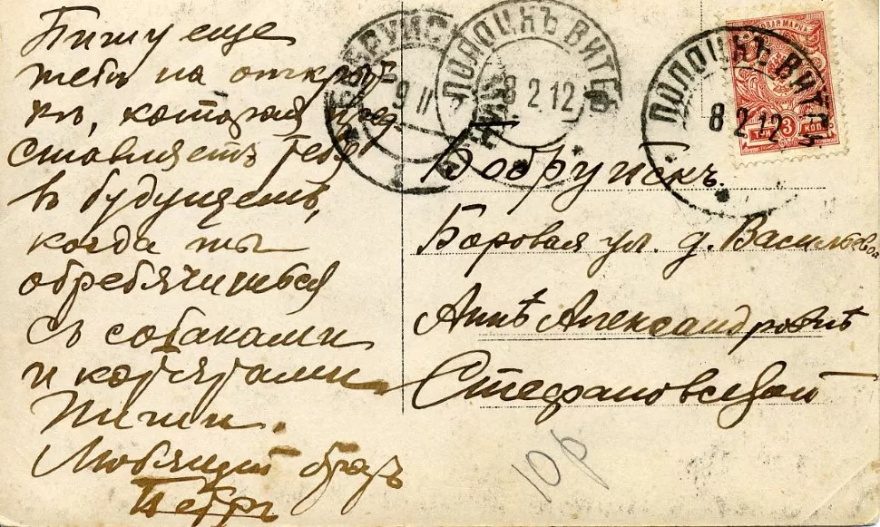 Пишу еще
тебѣ на открыт
кѣ, которая пред-
ставляетъ тебя
въ будущемъ,
когда ты
обребячишься
съ собаками
и котятами
Пиши.
Любящій братъ
Петръ
БОБРУЙС
9 II
1
ПОЛОЦКЪ ВИТЕБ
8 2 12
ПОЛОЦКЪ ВИТЕБ
8 2 12
МАРКА
3 КОП
Бобруйскъ.
Боровая ул. д. Васильева
Аннѣ Александровнѣ
Стефановской
10р